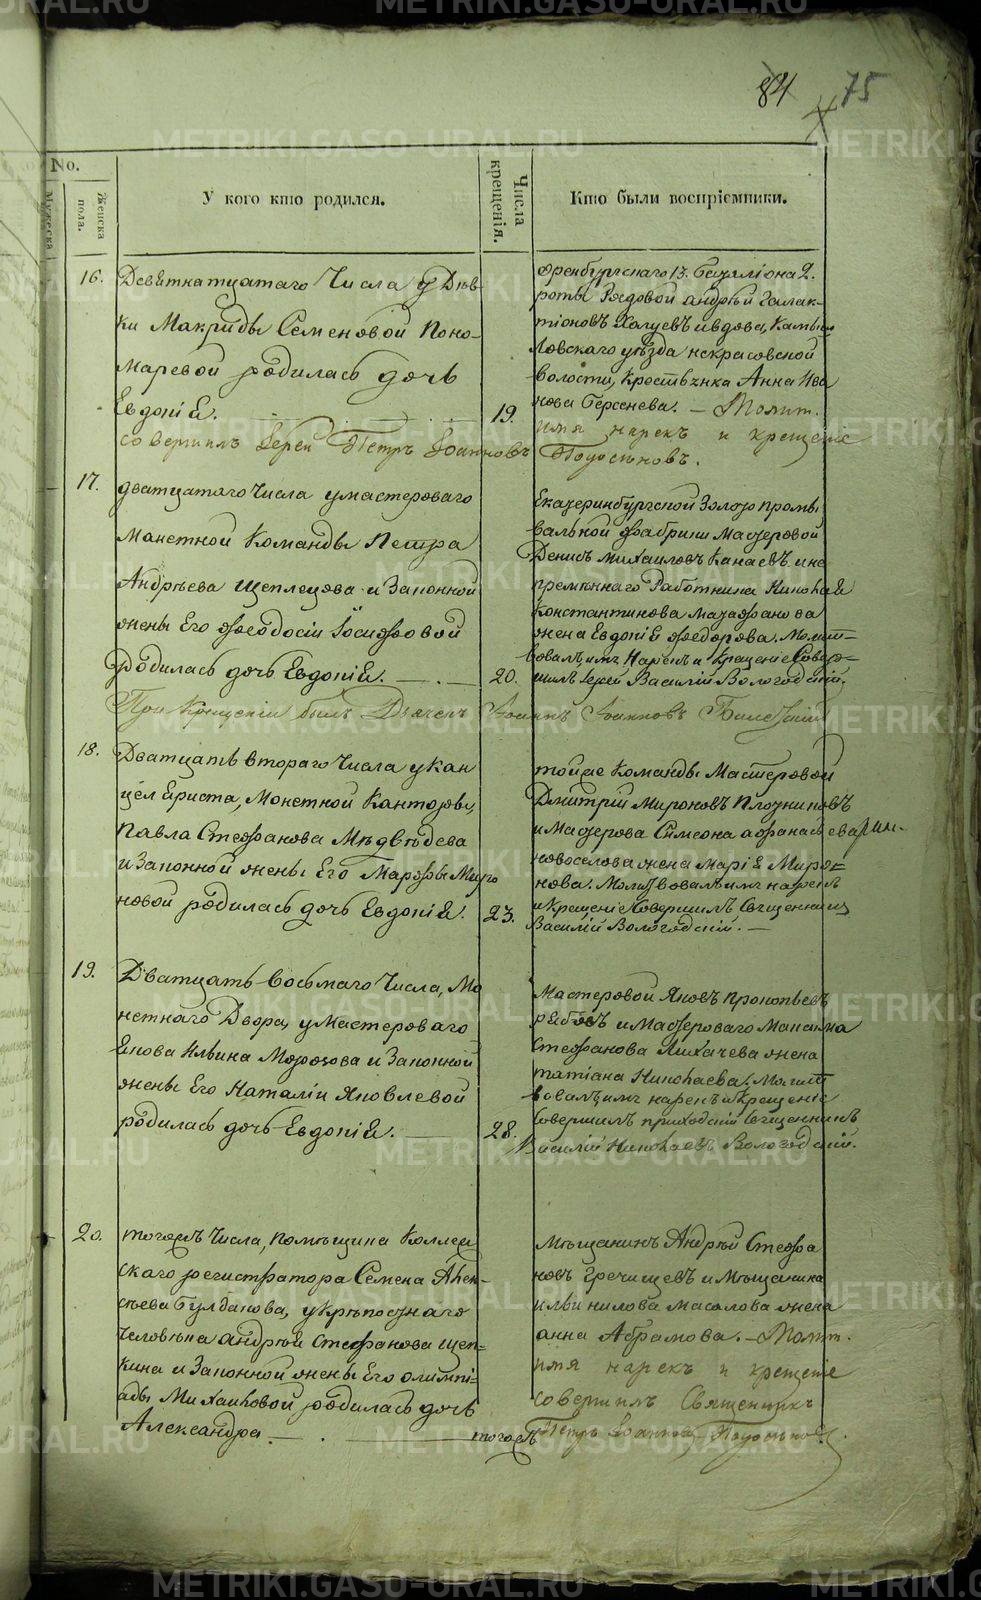 84 75
No.
Мужеска
Женска пола.
У кого кто родился.
Числа крещенія.
Кто были воспріемники.
16.
Девятнатцатаго Числа у Дѣв-
ки Макриды Семеновой Поно-
маревой родилась дочь
Евдокія.
19.
совершилъ Іерей Петръ Іоанновъ
Оренбургскаго 13. Баталіона 2.
роты Рядовой Андрей Галак-
тіоновъ и вдова, Камыш
ловскаго уѣзда некрасовской
волости, Крестьянка Анна Ива
нова Берсенева. — Молит.
имя нарекъ и крещеніе
17.
дватцатаго Числа умастероваго
Манетной Команды Петра
Андрѣева Щеплецова и Законной
жены Его Феодосіи Іосифовой
родилась дочь Евдокія.
20.
При Крещеніи былъ Дьячекъ Іоаннъ Іоанновъ
Екатеринбургской Золото промы
вальной фабрики Мастеровой
Денисъ Михаиловъ Канаевъ и не
премѣннаго Работника Николая
Константинова
жена Евдокія Федорова. Молит-
вовалъ имъ Нарекъ и Крещеніе Совер-
шилъ Іерей Василій Вологодскій.
18.
Дватцать втораго Числа у кан
целяриста, Монетной Канторы,
Павла Стефанова Мѣдвѣдева
и Законной жены Его Марфы Миро
новой родилась дочь Евдокія.
23.
тойже Команды Мастеровой
Дмитрій Мироновъ Плотниковъ
и Мастерова Симеона Афанасьева
новоселова жена Марія Миро-
нова. Молитвовалъ имъ нарекъ
и Крещеніе Совершилъ Священникъ
Василій Вологодскій. —
19.
Дватцать восьмаго Числа, Мо
нетнаго Двора, у Мастероваго
Якова Ильина Морозова и Законной
жены Его Наталіи Яковлевой
родилась дочь Евдокія.
28.
Мастеровой Яковъ Прокопьевъ
рябовъ и Мастероваго Максима
Стефанова Лихачева жена
татіана Николаева. Молит
вовалъ имъ нарекъ и Крещеніе
Совершилъ приходскій Священникъ
Василій Николаевъ Вологодскій.
20.
тогожъ Числа, помѣщика Коллеж-
скаго регистратора Семена Алек-
сѣева Булдакова, у крѣпостнаго
Человѣка Андрея Стефанова Щеп-
кина и Законной жены Его Олимпі-
ады Михаиловой родилась дочь
Александра.
тогожъ
Мѣщанинъ Андрей Стефа
новъ Гречищевъ и Мѣщанина
Масалова жена
анна Абрамова. — Молит.
имя нарекъ и крещеніе
совершилъ Священникъ
Петръ Іоанновъ
METRIKI.GASO-URAL.RU